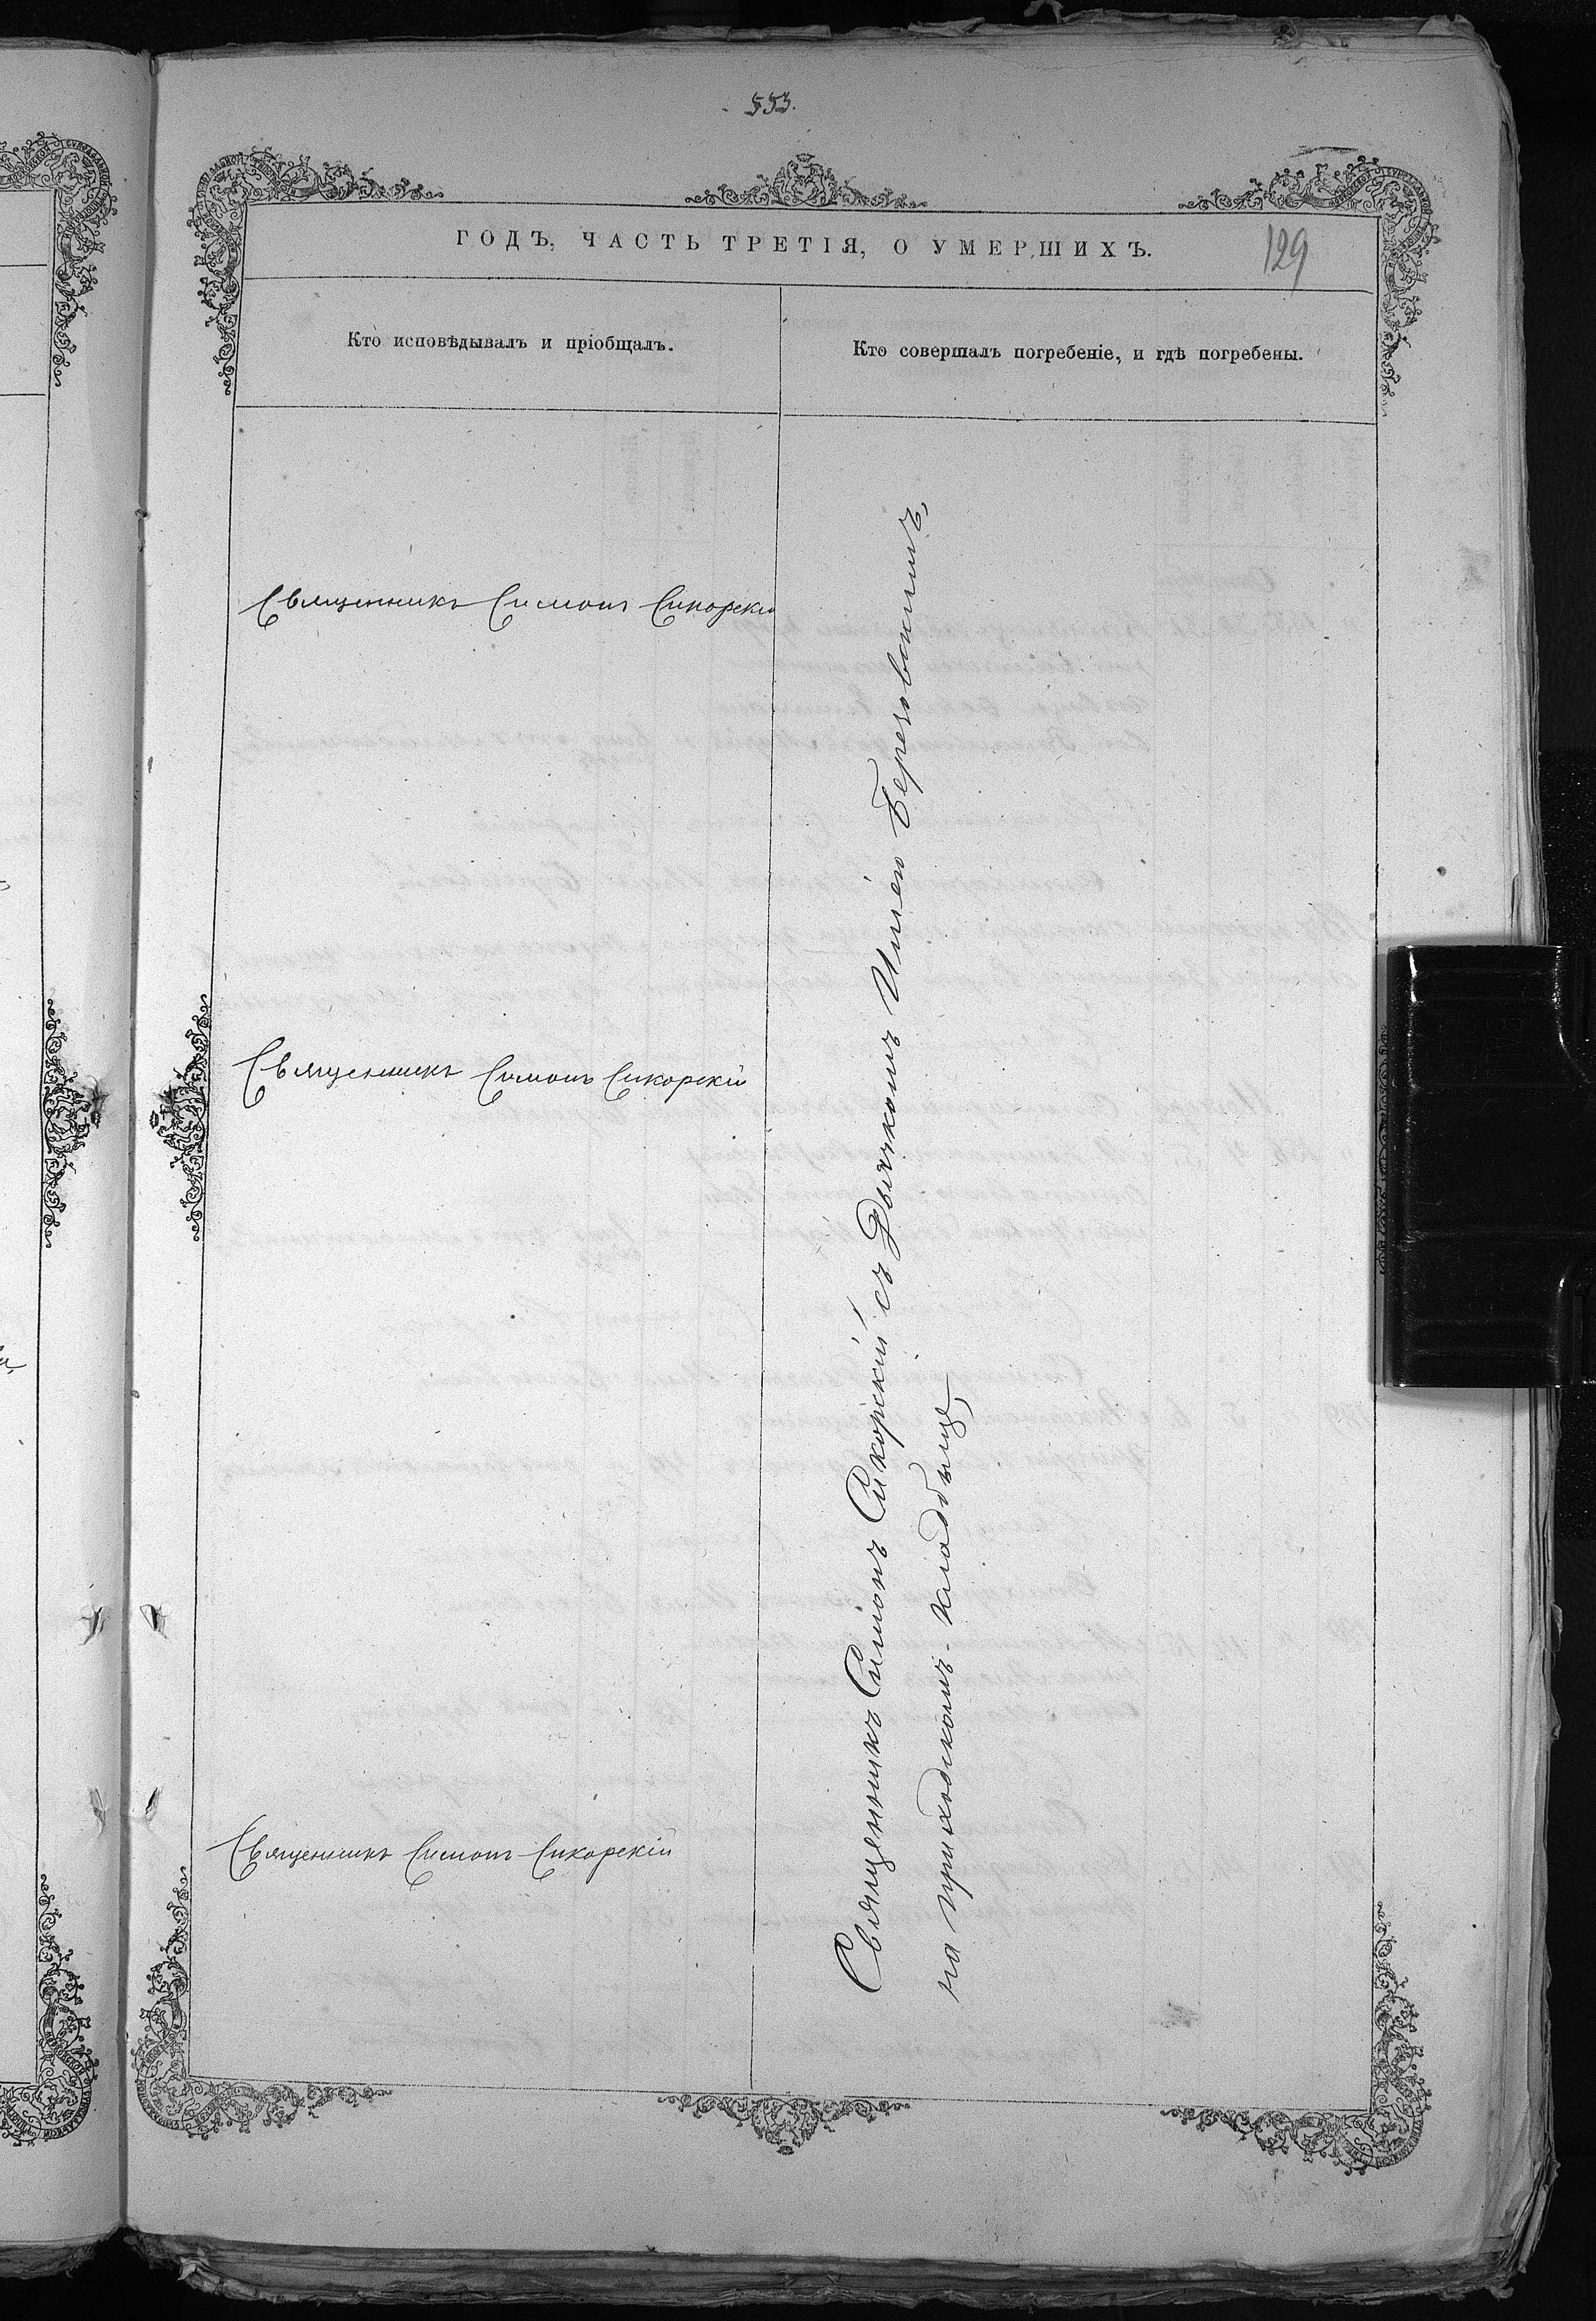 553.
ГОДЪ, ЧАСТЬ ТРЕТІЯ, О УМЕРШИХЪ.
129
Кто исповѣдывалъ и пріобщалъ.
Кто совершалъ погребеніе, и гдѣ погребены.
Священникъ Симонъ Сикорскій
Священникъ Симонъ Сикорскій
Священникъ Симонъ Сикорскій
Священникъ Симонъ Сикорскій съ Дьячкомъ Иліею Березовскимъ,
на приходскомъ кладбищѣ,